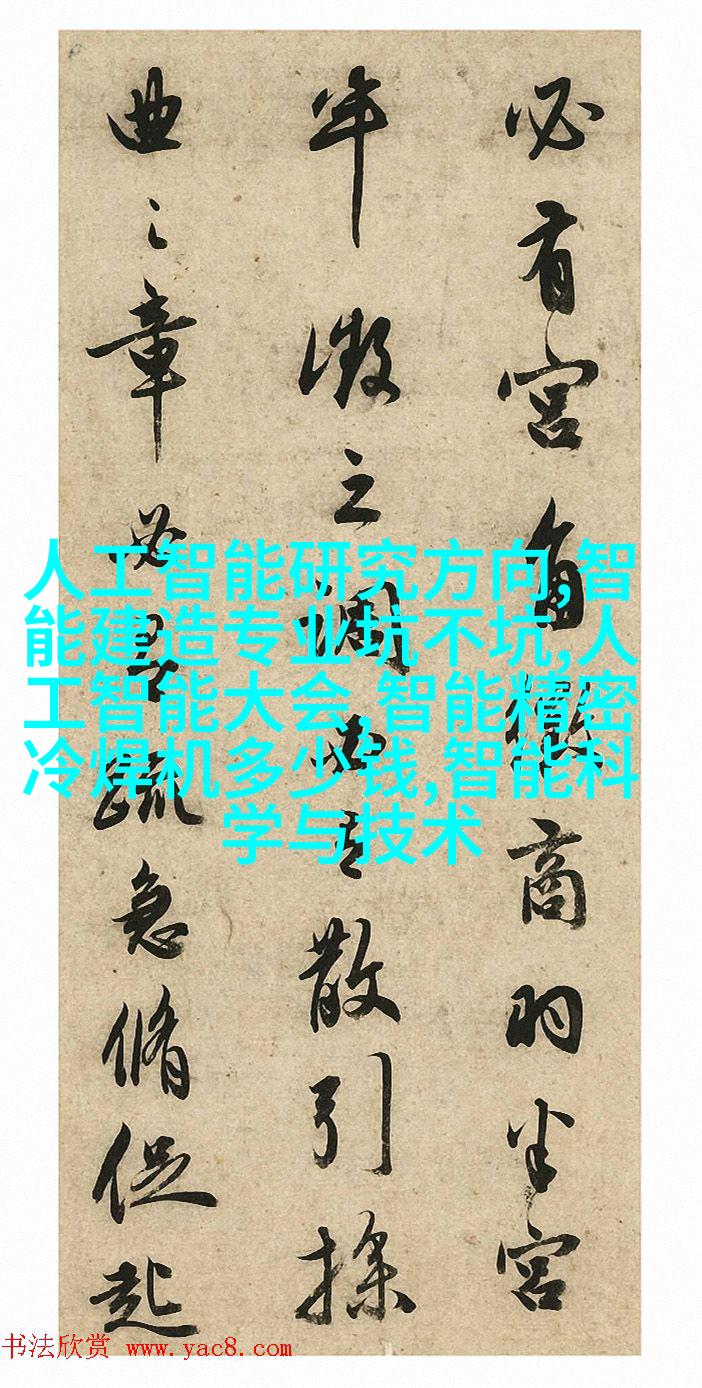 必有宮角徵商羽半宮
半徵之調必有散引操
曲之章必疏急脩促起
人工智能研究方向,智
能建造专业坑不坑,人
工智能大会,智能精密
冷焊机多少钱,智能科
学与技术
书法欣赏 www.yac8.com